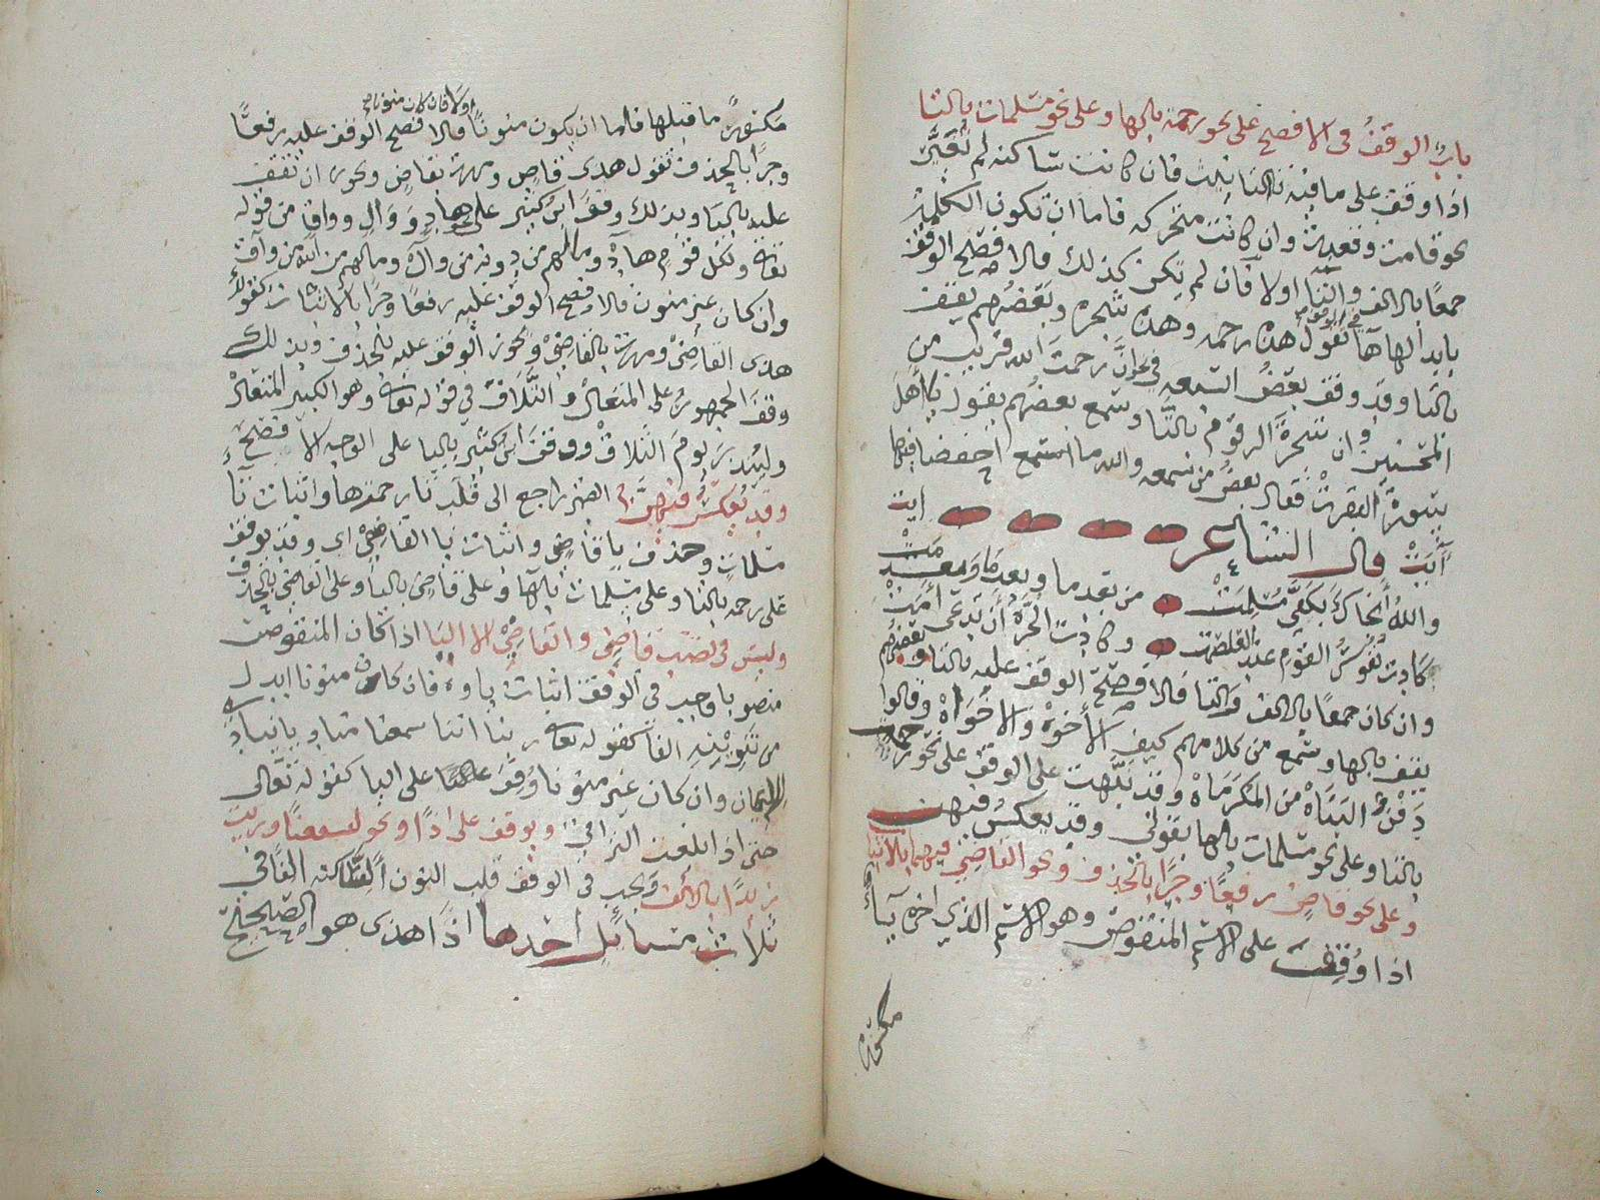 باب الوقف في الافصح على نحو رحمة بالها وعلى نحو مسلمات بالتا
اذا وقف على ما فيه تا التانيث فان كانت ساكنة لم تغير
نحو قامت وقعدت وان كانت متحركه فاما ان تكون الكلمة
جمعا بالالف والتا اولا فان لم تكن كذلك فالافصح الوقف
بابدالها ها تقول هذه رحمه وهذه شجره وبعضهم يقف
بالتا وقد وقف بعض السبعه في نحو ان رحمت الله قريب من
المحسنين وان شجرة الزقوم بالتا وسمع بعضهم يقول يا أهل
سورة البقرت فقال بعض من سمعه والله ما احفظ فيها
آيت قال الشاعر
والله أنجاك بكفي مسلمت من بعد ما وبعد ما وبعد مت
كادت نفوس القوم عند الغلصمت وكادت الحرة أن تدعى أمت
وان كان جمعا بالالف والتا فالافصح الوقف عليه بالتا وبعضهم
يقف بالها وسمع من كلامهم كيف الأخوه والاخواه وقالوا
دفن البناه من المكرماه وقد نبهت على الوقف على نحو رحمت
بالتا وعلى نحو مسلمات بالها بقولي وقد يعكس فيهن
وعلى نحو قاض رفعا وجرا بالحذف ونحو القاضي فيهما بالاثبا
اذا وقفت على الاسم المنقوص وهو الاسم الذي اخره يآء
مكسور
مكسور ما قبلها فاما ان يكون منونا اولا فان كان منونا فالافصح الوقف عليه رفعا
وجرا بالحذف تقول هذى قاض ومررت بقاض ويجوز ان تقف
عليه باليا وبذلك وقف ابن كثير على هاد ووال وواق من قوله
تعالى ولكل قوم هاد وما لهم من دونه من وال وما لهم من الله من واق
وان كان غير منون فالافصح الوقف عليه رفعا وجرا بالاثبات كقولك
هذى القاضي ومررت بالقاضي ويجوز الوقف عليه بالحذف وبذلك
وقف الجمهور على المتعال والتلاق في قوله تعالى وهو الكبير المتعال
ولينذر يوم التلاق ووقف ابن كثير باليا على الوجه الافصح
وقد يعكس فيهن الضمير راجع الى قلب تا رحمة ها واثبات تا
مسلمات وحذف يا قاض واثبات يا القاضي اي وقد يوقف
على رحمه بالتا وعلى مسلمات بالها وعلى قاض باليا وعلى القاضي بالحذف
وليس في نصب قاض والقاضي الا اليا اذا كان المنقوص
منصوبا وجب في الوقف اثبات ياوه فان كان منونا ابدل
من تنوينه الفا كقوله تعالى ربنا اننا سمعنا مناديا ينادي
للايمان وان كان غير منونا وقف على اليا كقوله تعالى
حتى اذا بلغت التراقي ويوقف على اذا ونحو لنسفعا ورايت
زيدا بالالف ويجب في الوقف قلب النون الساكنة الفا في
ثلاث مسائل احدها اذا هذى هو الصحيح